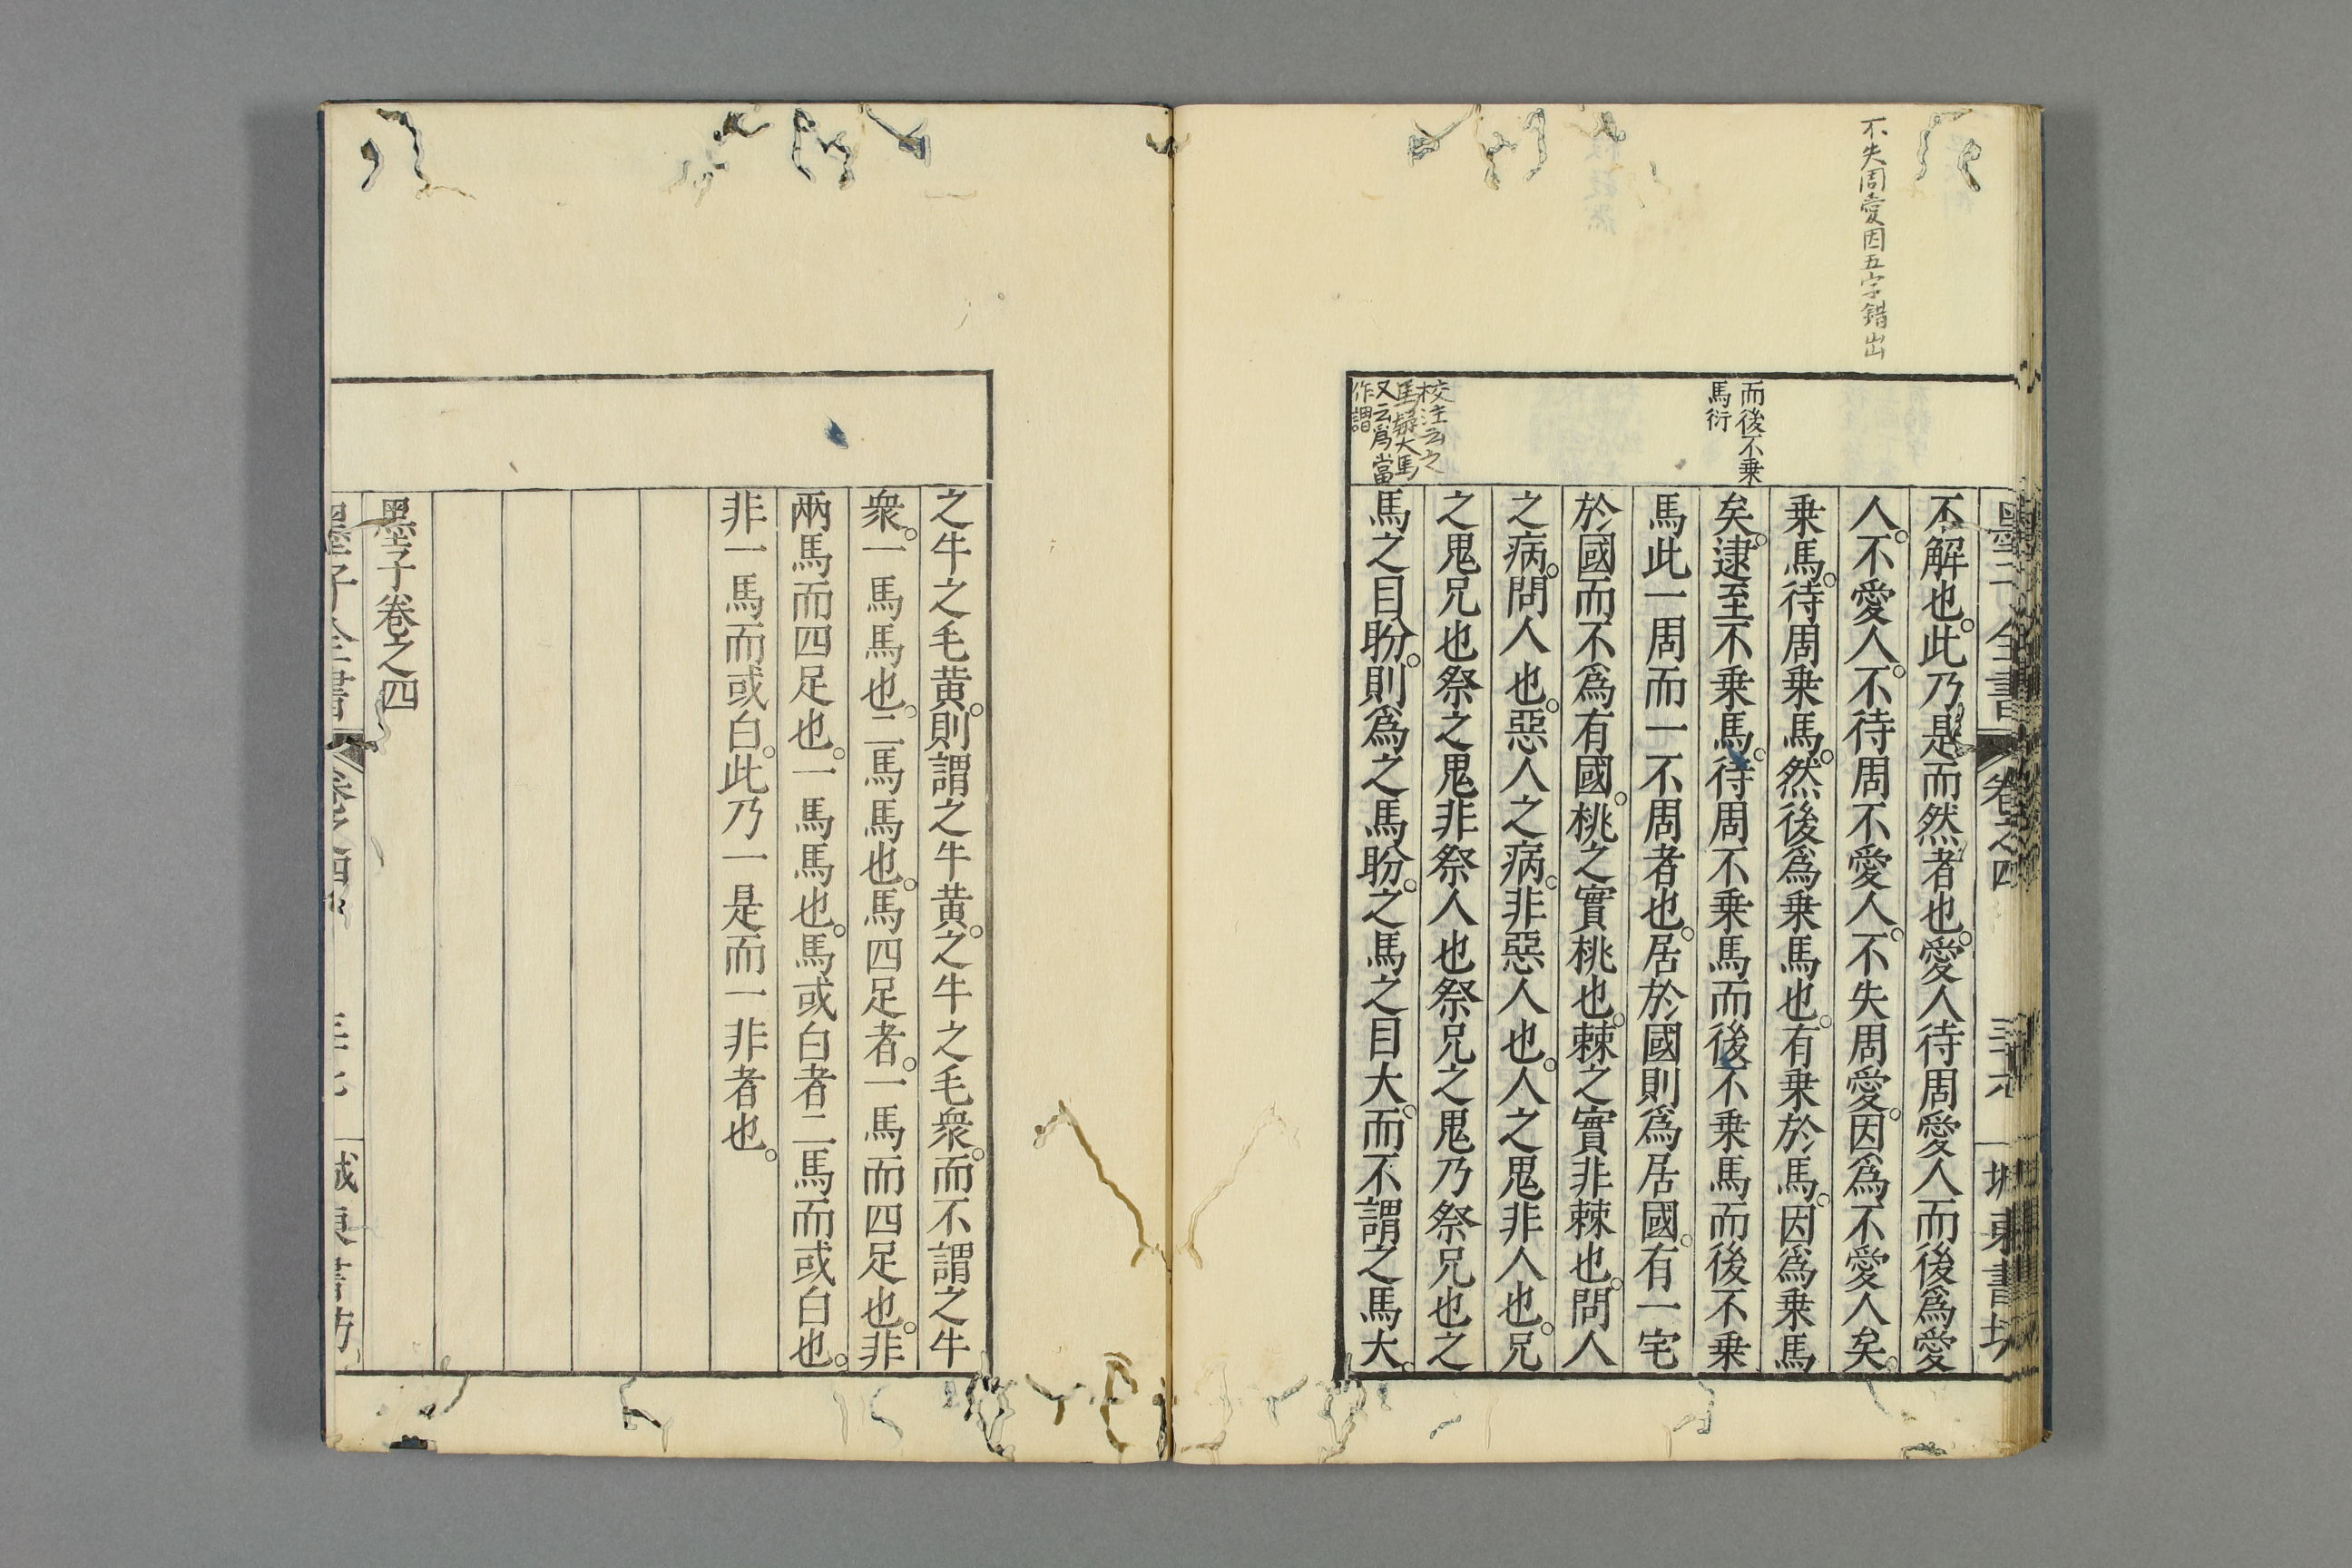 不失周愛因五字錯出
而後不乗
馬衍
校注云之
馬疑大馬
又云爲當
作謂
墨子全書 卷之四 三十六 城東書坊
不解也。此乃是而然者也。愛人待周愛人而後爲愛
人。不愛人。不待周不愛人。不失周愛。因爲不愛人矣。
乗馬。待周乗馬。然後爲乗馬也。有乗於馬。因爲乗馬
矣。逮至不乗馬。待周不乗馬而後不乗馬而後不乗
馬此一周而一不周者也。居於國則爲居國。有一宅
於國而不爲有國。桃之實桃也。棘之實非棘也。問人
之病。問人也。惡人之病。非惡人也。人之鬼非人也。兄
之鬼兄也祭之鬼非祭人也祭兄之鬼乃祭兄也之
馬之目盼。則爲之馬盼。之馬之目大。而不謂之馬大。
之牛之毛黄。則謂之牛黄。之牛之毛衆。而不謂之牛
衆。一馬馬也。二馬馬也。馬四足者。一馬而四足也。非
兩馬而四足也。一馬馬也。馬或白者二馬而或白也。
非一馬而或白。此乃一是而一非者也。
墨子卷之四